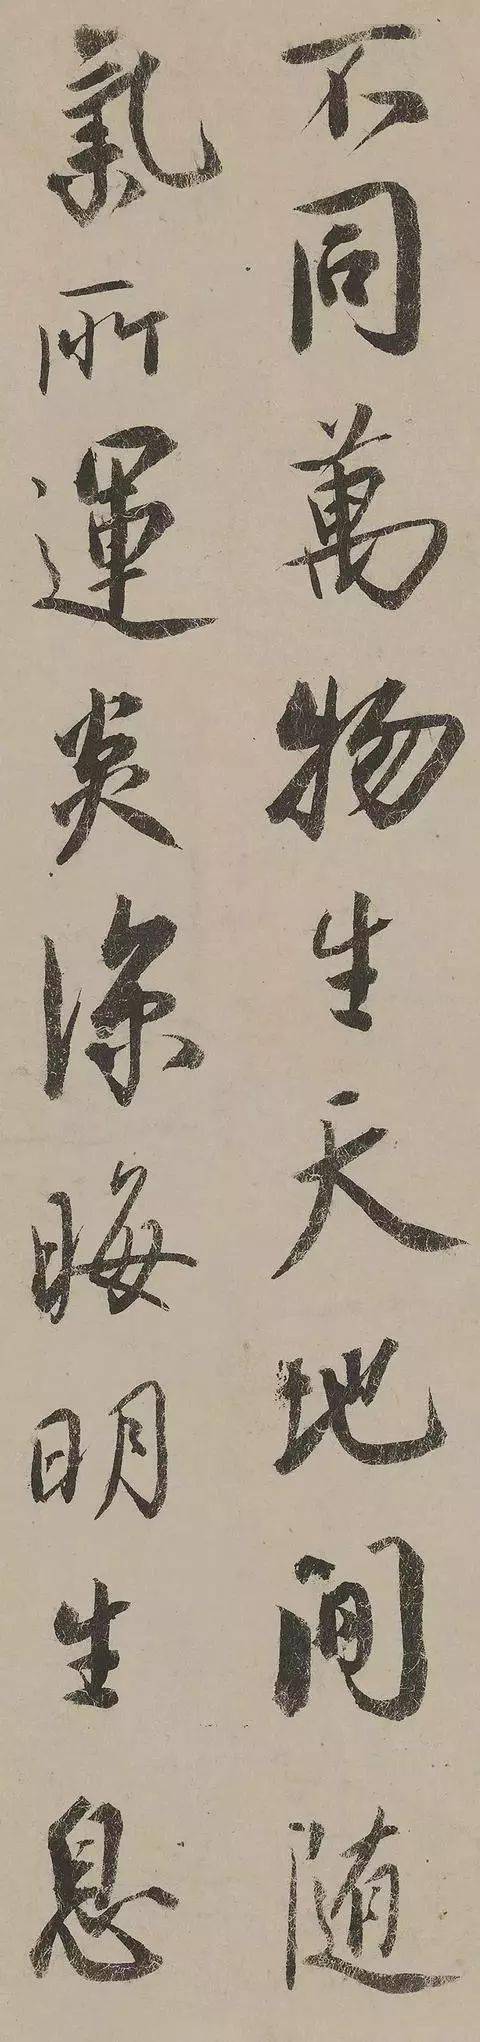 不同萬物生天地間随
氣所運炎涼晦明生息